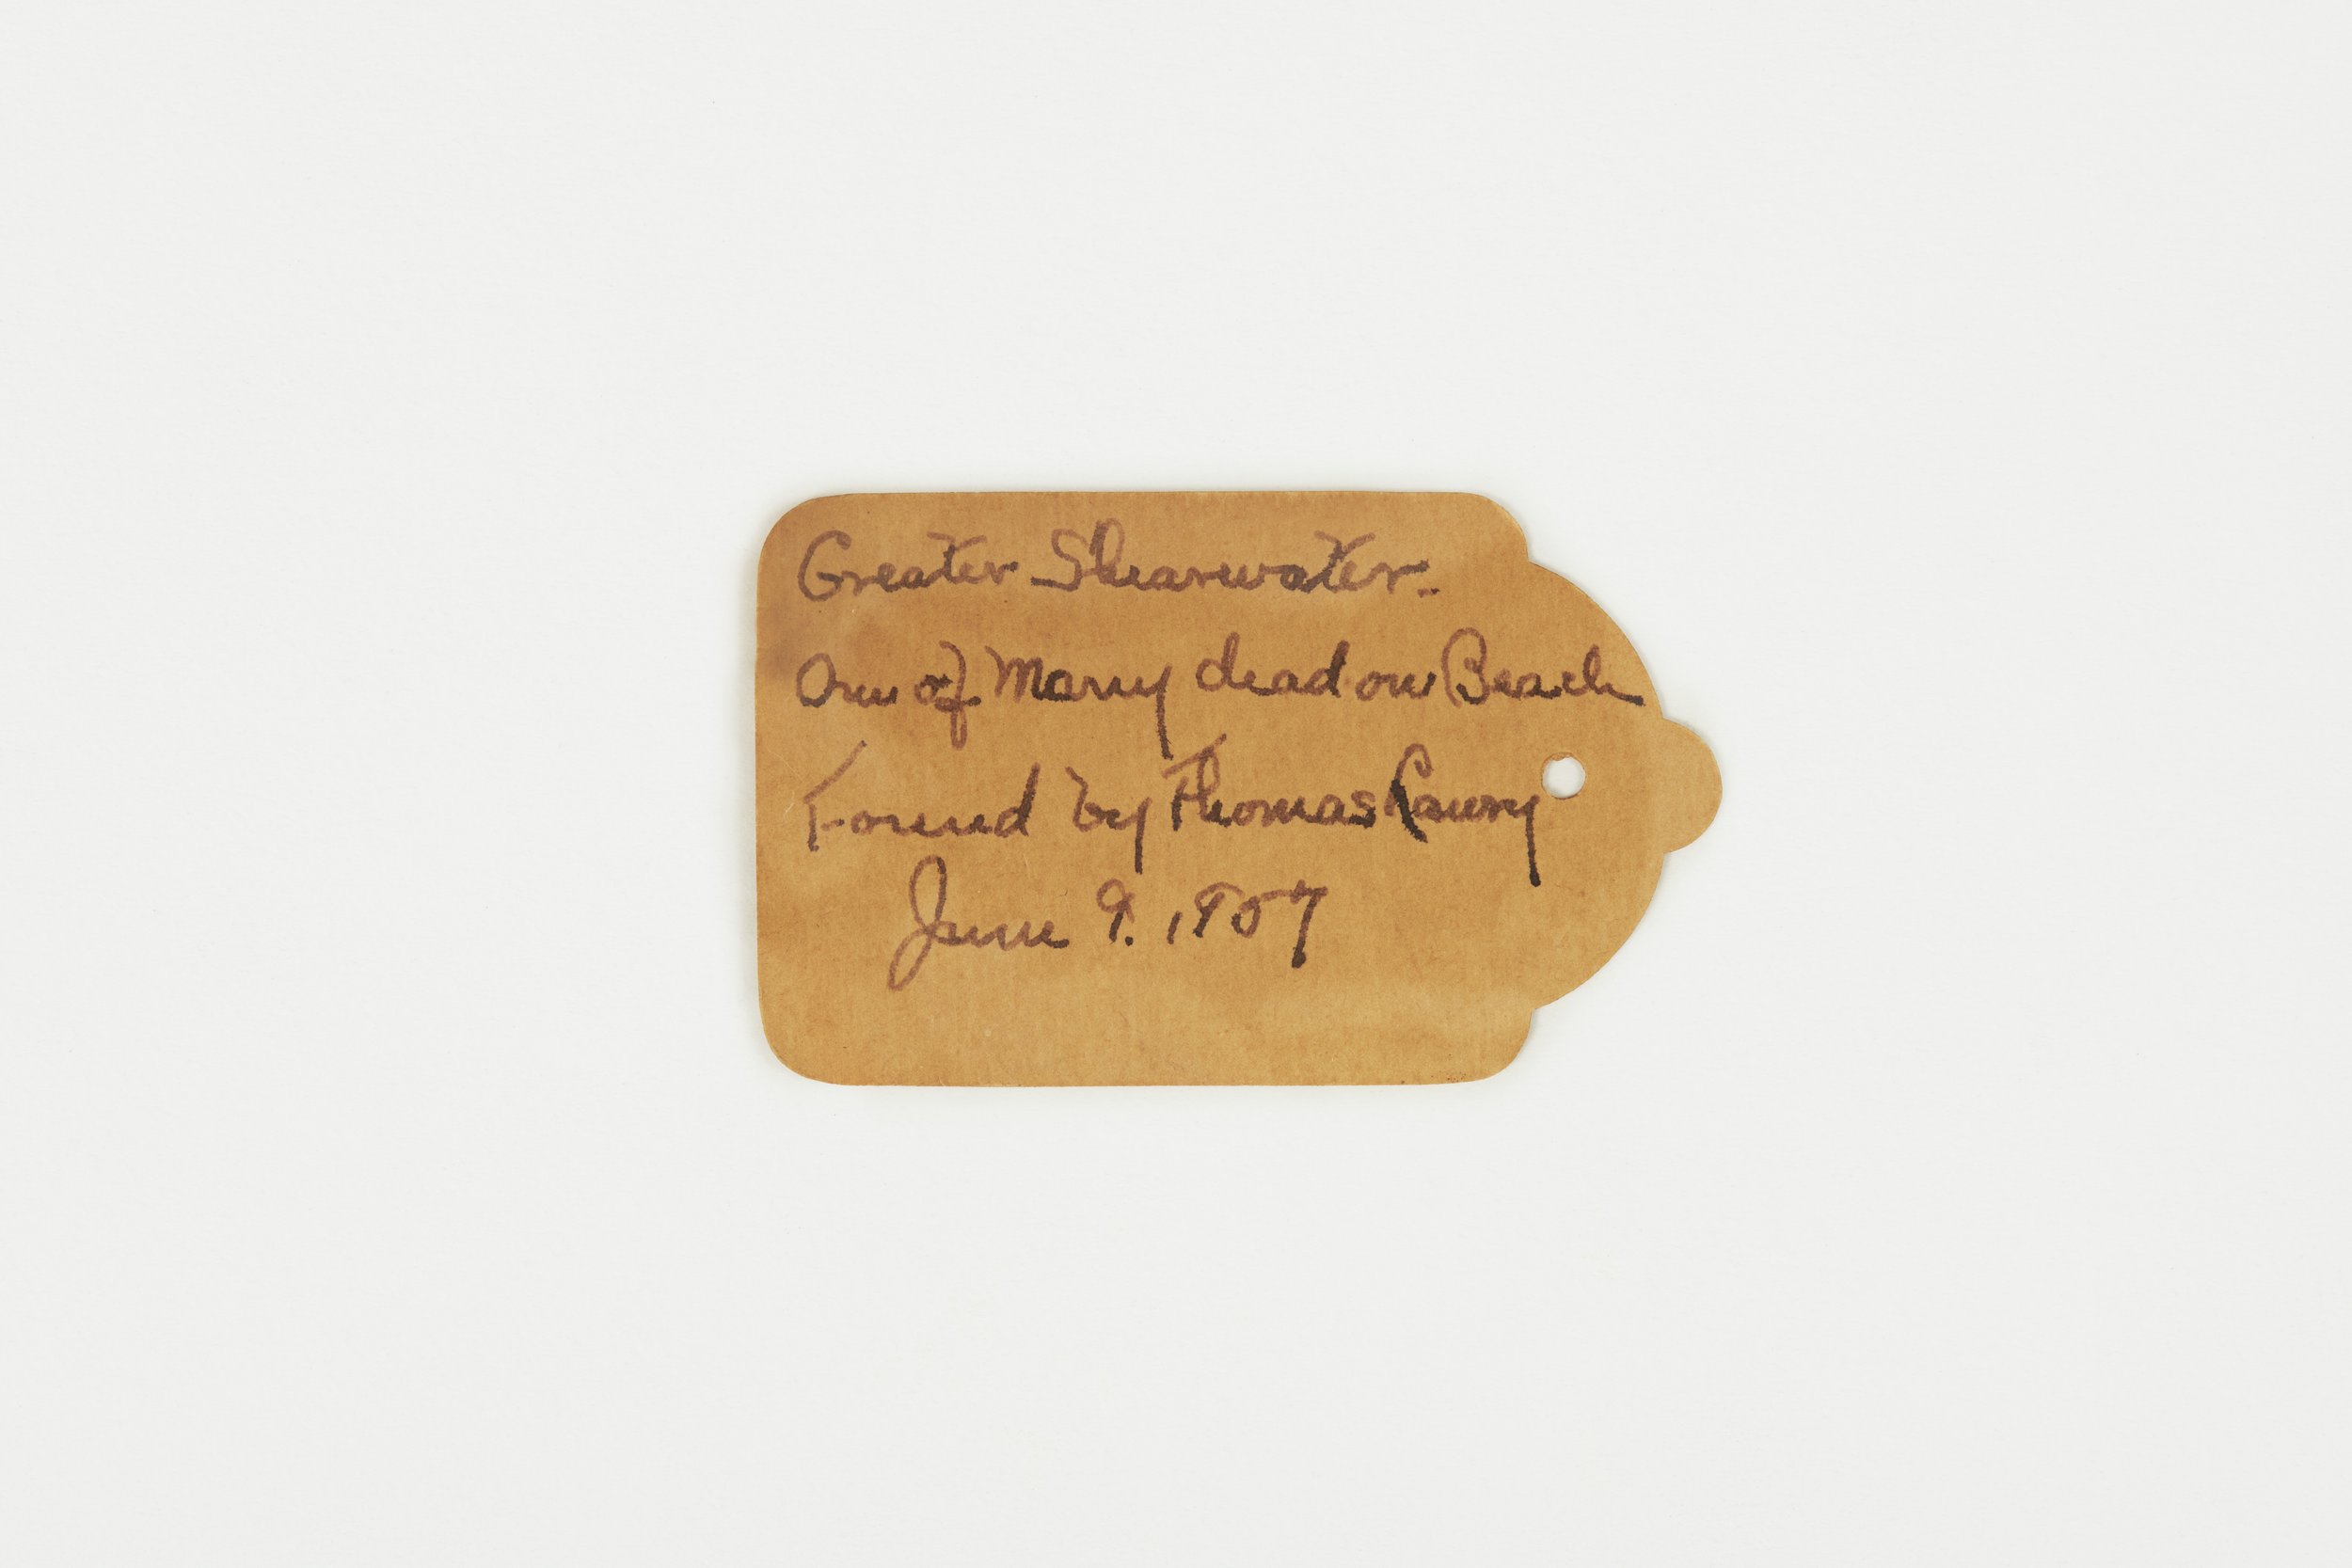 Greater Shearwater.
One of Many dead on Beach
Found by Thomas
June 9. 1957